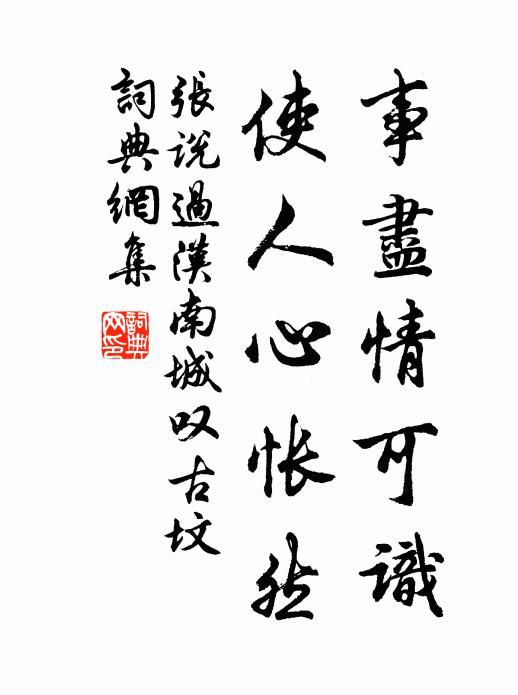 事盡情可識
使人心怅然
張说過漢南城叹古坟
詞典網集
詞典
网印